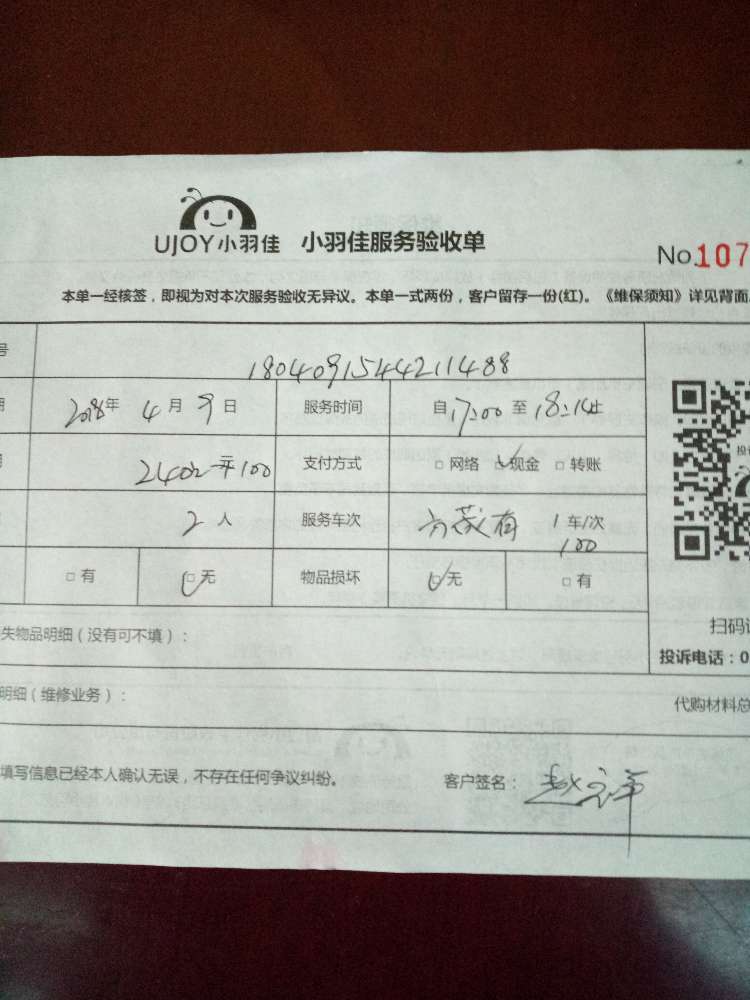 UJOY小羽佳 小羽佳服务验收单
No.107
本单一经核签，即视为对本次服务验收无异议。本单一式两份，客户留存一份(红)。《维保须知》详见背面
号 1804091544211488
2018年 4月9日 服务时间 自17:00至18:14止
支付方式 □网络 ☑现金 □转账
2人 服务车次 1车1次
100
□有 ☑无 物品损坏 ☑无 □有
扫码
失物品明细（没有可不填）：
投诉电话：0
明细（维修业务）：
代购材料总
填写信息已经本人确认无误，不存在任何争议纠纷。 客户签名：